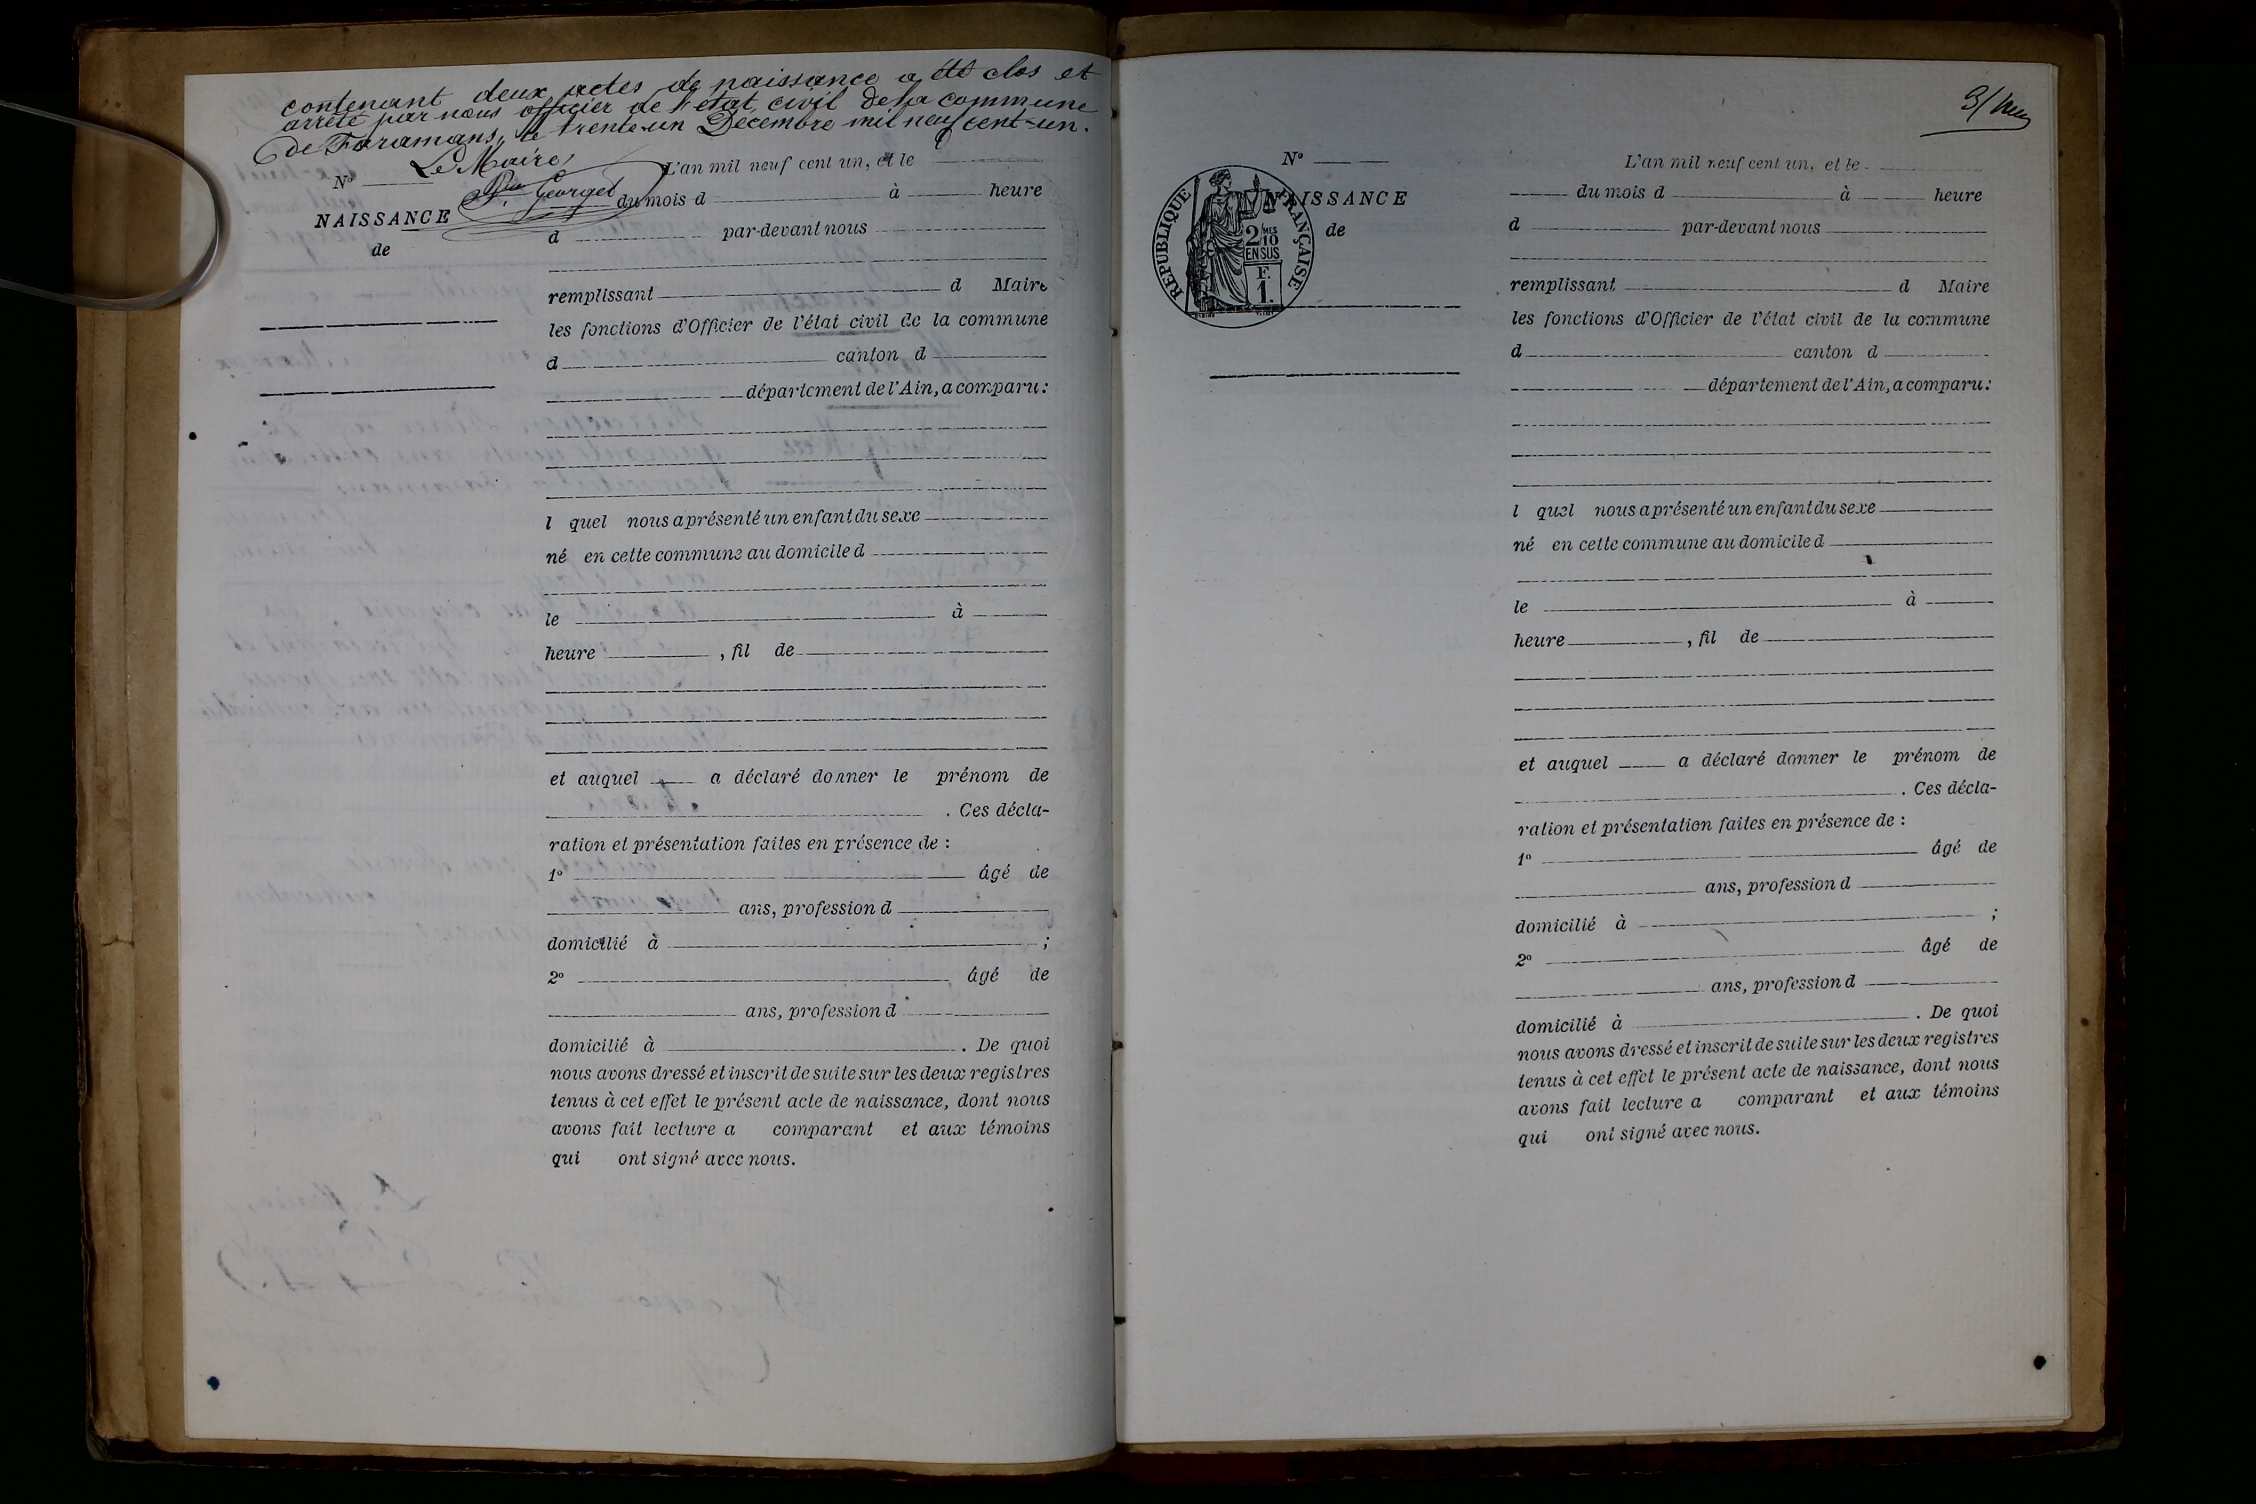 contenant deux actes de naissance a été clos et
arrêté par nous officier de l'état civil de la commune
de Faramans, le trente-un Décembre mil neuf cent-un.
Le Maire,
Georget
N°
NAISSANCE
de
L'an mil neuf cent un, et le
du mois d à heure
d par-devant nous
remplissant d Maire
les fonctions d'Officier de l'état civil de la commune
d canton d
département de l'Ain, a comparu:
l quel nous a présenté un enfant du sexe
né en cette commune au domicile d
le à
heure , fil de
et auquel a déclaré donner le prénom de
. Ces décla-
ration et présentation faites en présence de :
1° âgé de
ans, profession d
domicilié à ;
2° âgé de
ans, profession d
domicilié à . De quoi
nous avons dressé et inscrit de suite sur les deux registres
tenus à cet effet le présent acte de naissance, dont nous
avons fait lecture a comparant et aux témoins
qui ont signé avec nous.
N°
NAISSANCE
de
RÉPUBLIQUE FRANÇAISE
2/10 MES
EN SUS
F.
1.
L'an mil neuf cent un, et le
du mois d à heure
d par-devant nous
remplissant d Maire
les fonctions d'Officier de l'état civil de la commune
d canton d
département de l'Ain, a comparu:
l quel nous a présenté un enfant du sexe
né en cette commune au domicile d
le à
heure , fil de
et auquel a déclaré donner le prénom de
. Ces décla-
ration et présentation faites en présence de :
1° âgé de
ans, profession d
domicilié à ;
2° âgé de
ans, profession d
domicilié à . De quoi
nous avons dressé et inscrit de suite sur les deux registres
tenus à cet effet le présent acte de naissance, dont nous
avons fait lecture a comparant et aux témoins
qui ont signé avec nous.